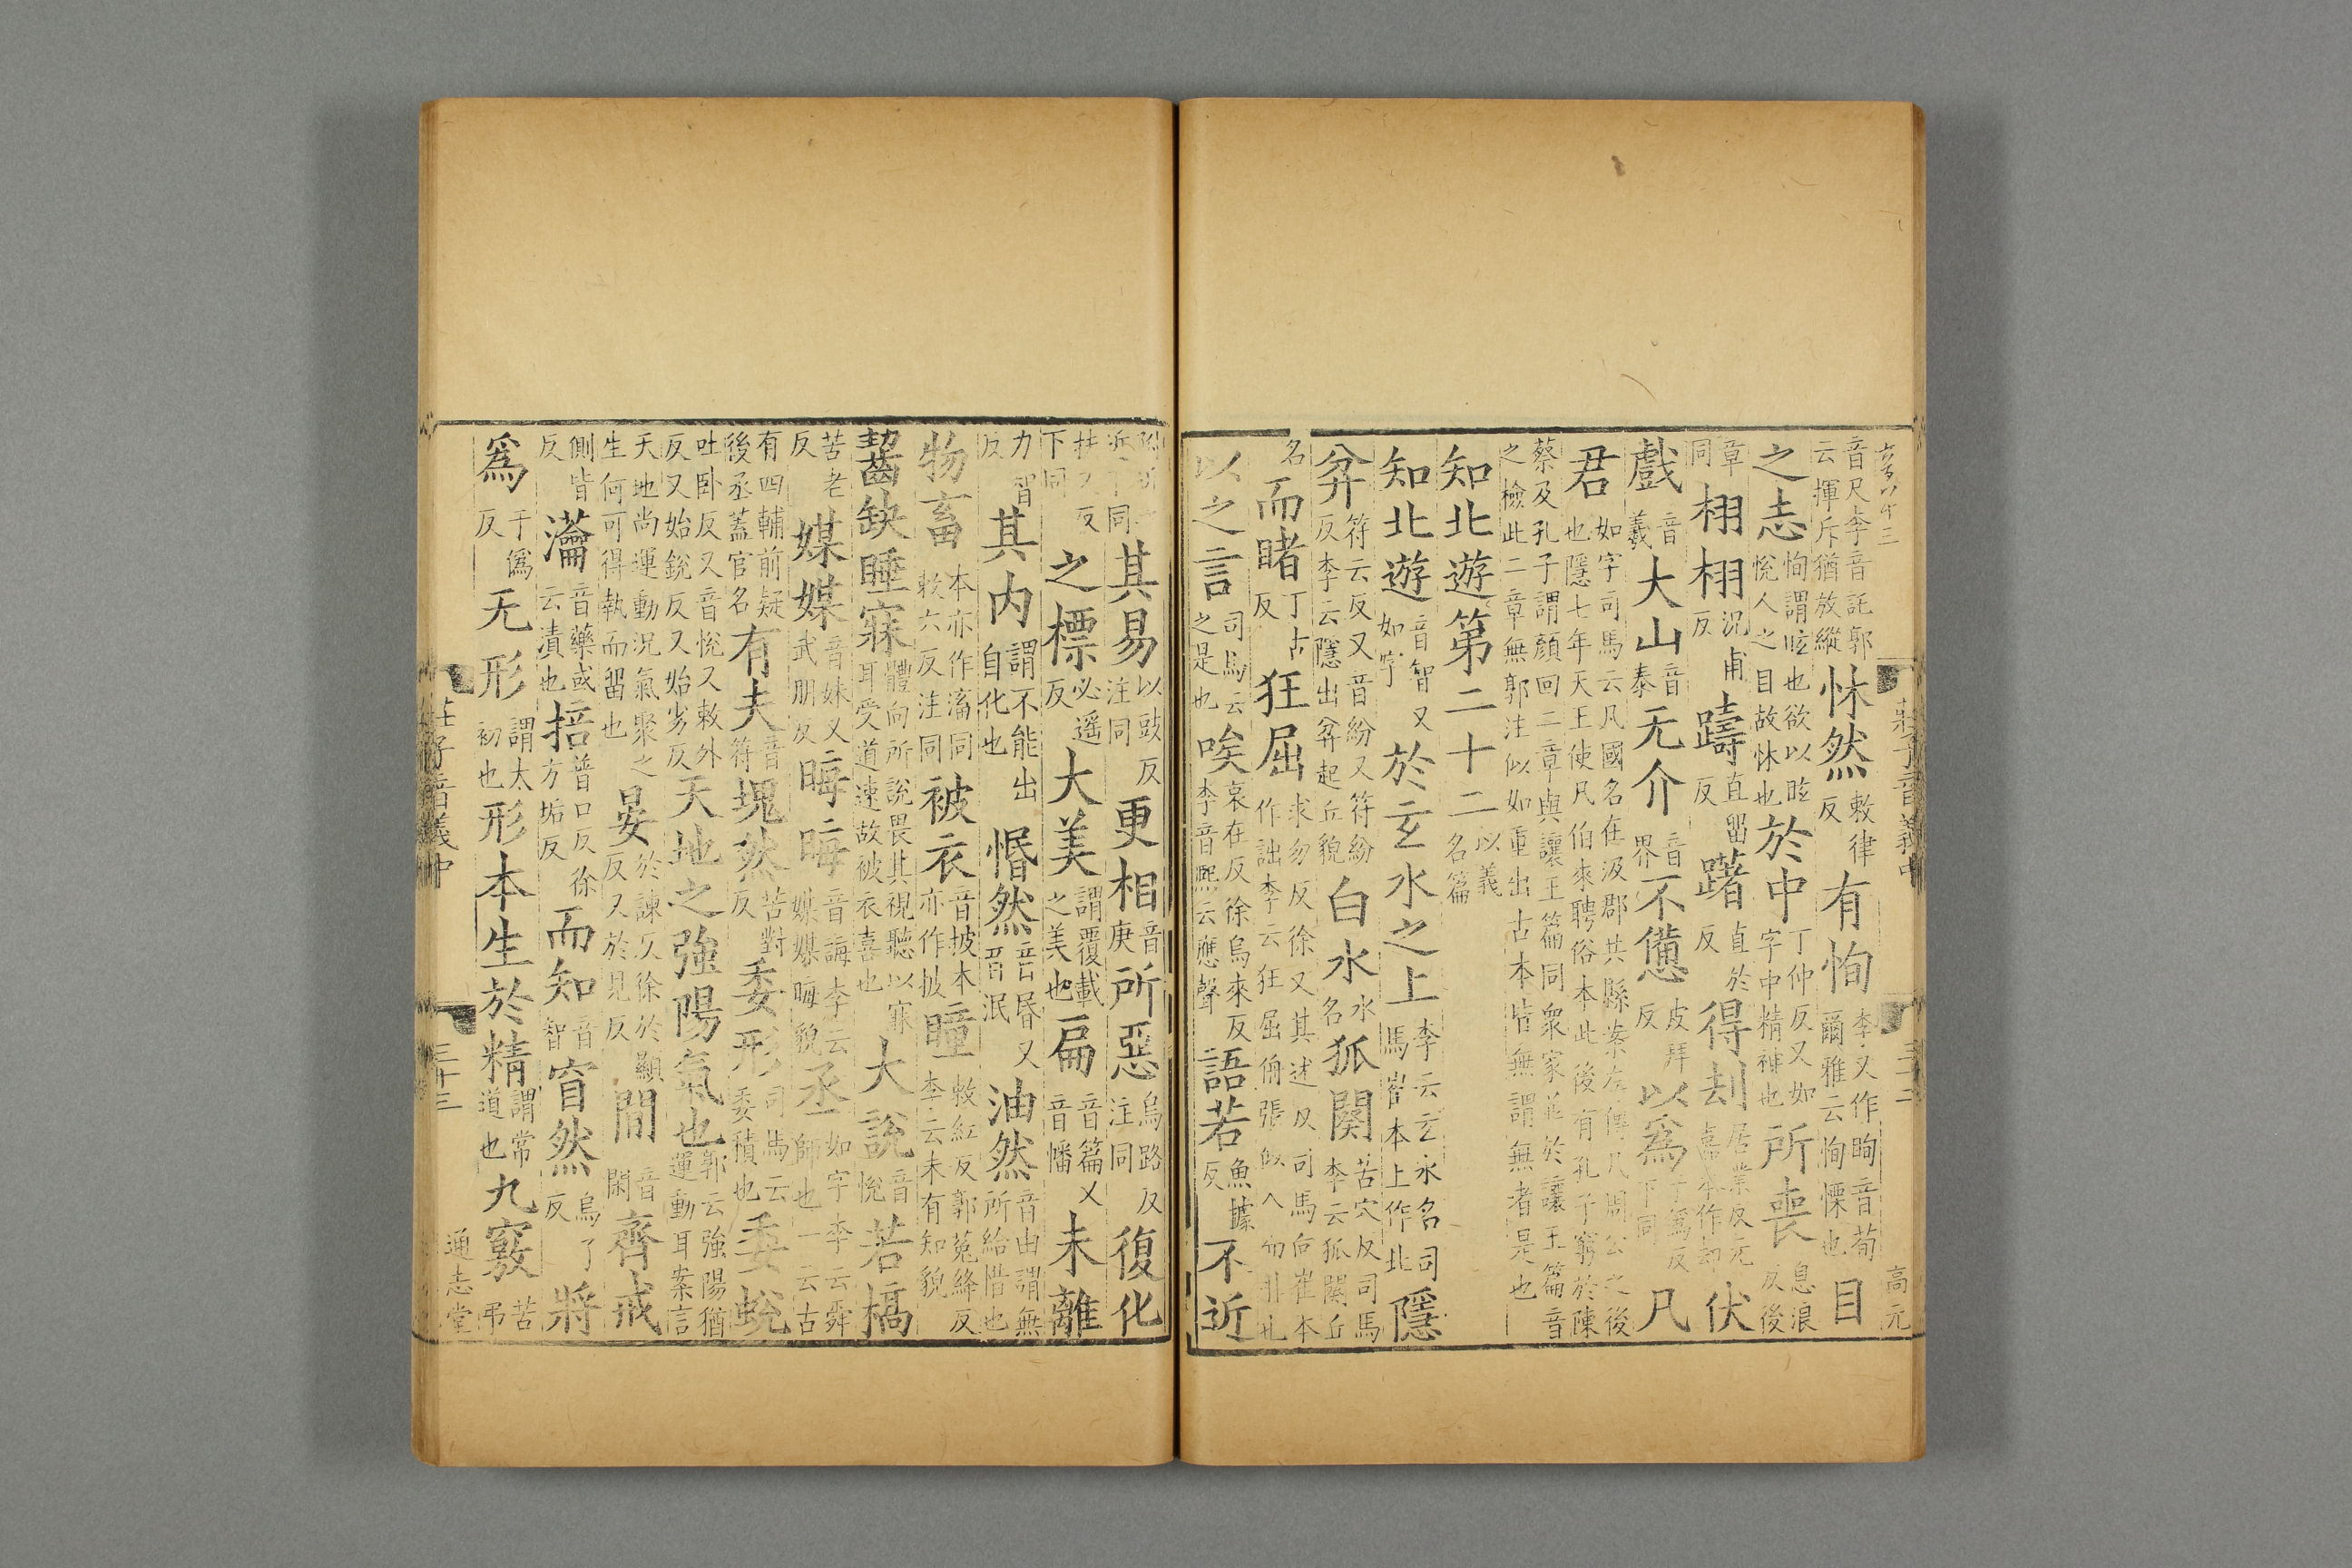 音尺李音託郭云揮斥猶放縱怵然敕律反有恂李又作眴音荀爾雅云恂慄也目
之志恂謂眩也欲以眩悅人之目故怵也於中丁仲反又如字中精神也所喪息浪反後
章同栩栩況甫反躊直留反躇直於反得刦居業反元嘉本作却伏
戲音羲大山音泰无介音界不憊皮拜反以爲于爲反下同凡
君如字司馬云凡國名在汲郡共縣案左傳凡周公之後也隱七年天王使凡伯來聘俗本此後有孔子窮於陳
蔡及孔子謂顏回二章與讓王篇同衆家並於讓王篇音之檢此二章無郭注似如重出古本皆無謂無者是也
知北遊第二十二以義名篇
知北遊音智又如字於玄水之上李云玄水名司馬崔本上作北隱
弅符云反又音紛又符紛反李云隱出弅起丘貌白水水名狐闋苦穴反司馬李云狐闋丘
名而睹丁古反狂屈求勿反徐又其述反司馬向崔本作詘李云狂屈侜張似人而非也
以之言司馬云之是也唉哀在反徐烏來反李音熙云應聲語若魚據反不近
附近之近下同其易以豉反注同更相音庚所惡烏路反注同復化
扶又反下同之標必遥反大美謂覆載之美也扁音篇又音幡未離
力智反其内謂不能出自化也惛然音昏又音泯油然音由謂無所給惜也
物畜本亦作滀同敕六反注同被衣音披本亦作披瞳敕紅反郭菟絳反李云未有知貌
齧缺睡寐體向所說畏其視聽以寐耳受道速故被衣喜也大說音悅若槁
苦老反媒媒音妹又武朋反晦晦音誨李云媒媒晦貌丞如字李云舜師也一云古
有四輔前疑後丞蓋官名有夫音符塊然苦對反委形司馬云委積也委蛻
吐卧反又音悅又敕外反又始銳反又始劣反天地之強陽氣也郭云強陽猶運動耳案言
天地尚運動況氣聚之生何可得執而留也晏於諫反徐於顯反又於見反閒音閑齊戒
側皆反瀹音藥或云漬也掊普口反徐方垢反而知音智窅然烏了反將
爲于僞反无形謂太初也形本生於精謂常道也九竅苦弔
莊子音義中
三十二
高元
莊子音義中
三十三
通志堂